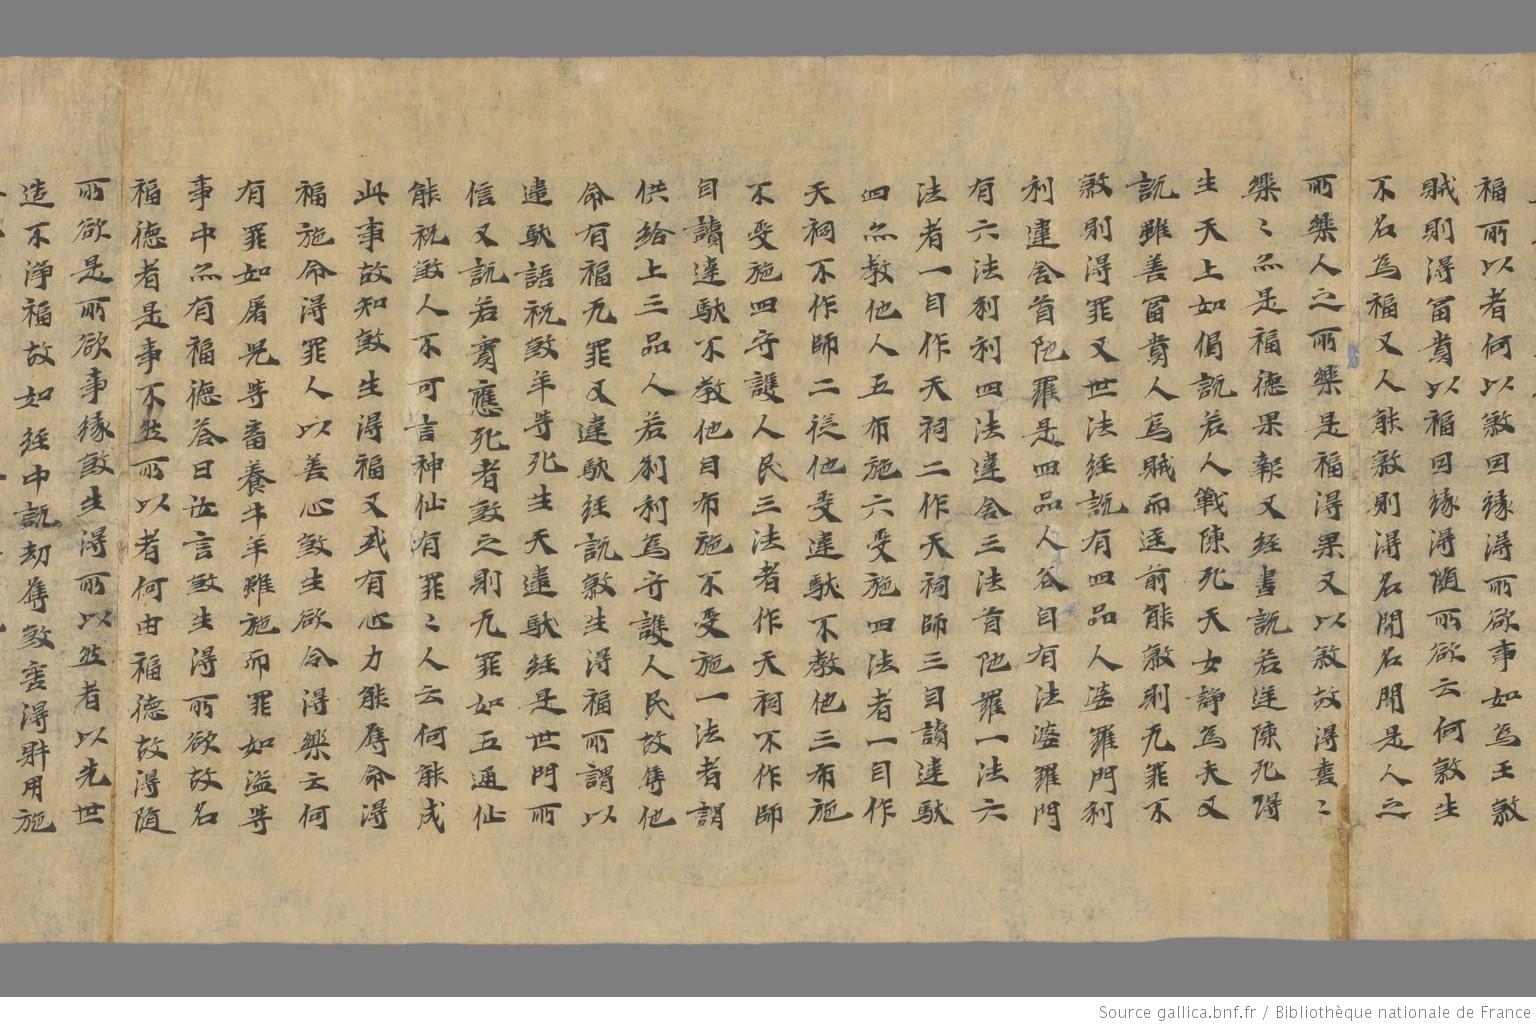 福所以者何以煞回緣得所欲事如為王煞
賊則得冨貴以福回緣得随所欲云何煞生
不名為福又人能煞則得名聞名聞是人之
所樂人之所樂是福得果又以煞故得喜〻
樂〻亦是福德果報又經書說若逆陳死得
生天上如偈說若人戰陳死天女諍為夫又
說雖善冨貴人為賊而逆前能煞則无罪不
煞則得罪又世法經說有四品人婆羅門刹
利違舍首陁羅是四品人各自有法婆羅門
有六法刹利四法違舍三法首陁羅一法六
法者一自作天祠二作天祠師三自讀違馱
四亦教他人五布施六受施四法者一自作
天祠不作師二從他受違馱不教他三布施
不受施四守護人民三法者作天祠不作師
自讀違馱不教他自布施不受施一法者謂
供給上三品人若刹利為守護人民故奪他
命有福无罪又違馱經說煞生得福所謂以
違馱語祝煞羊羊死生天違馱經是世門所
信又說若實應死者煞之則无罪如五通仙
能祝煞人不可言神仙有罪〻人云何能成
此事故知煞生得福又或有心力能奪命得
福施命得罪人以善心煞生欲令得樂云何
有罪如屠兒等畜養牛羊雖施而罪如盜等
事中亦有福德答曰汝言煞生得所欲故名
福德者是事不然所以者何由福德故得随
所欲是所欲事緣煞生得所以然者以先世
造不淨福故如經中說劫奪煞害得財用施